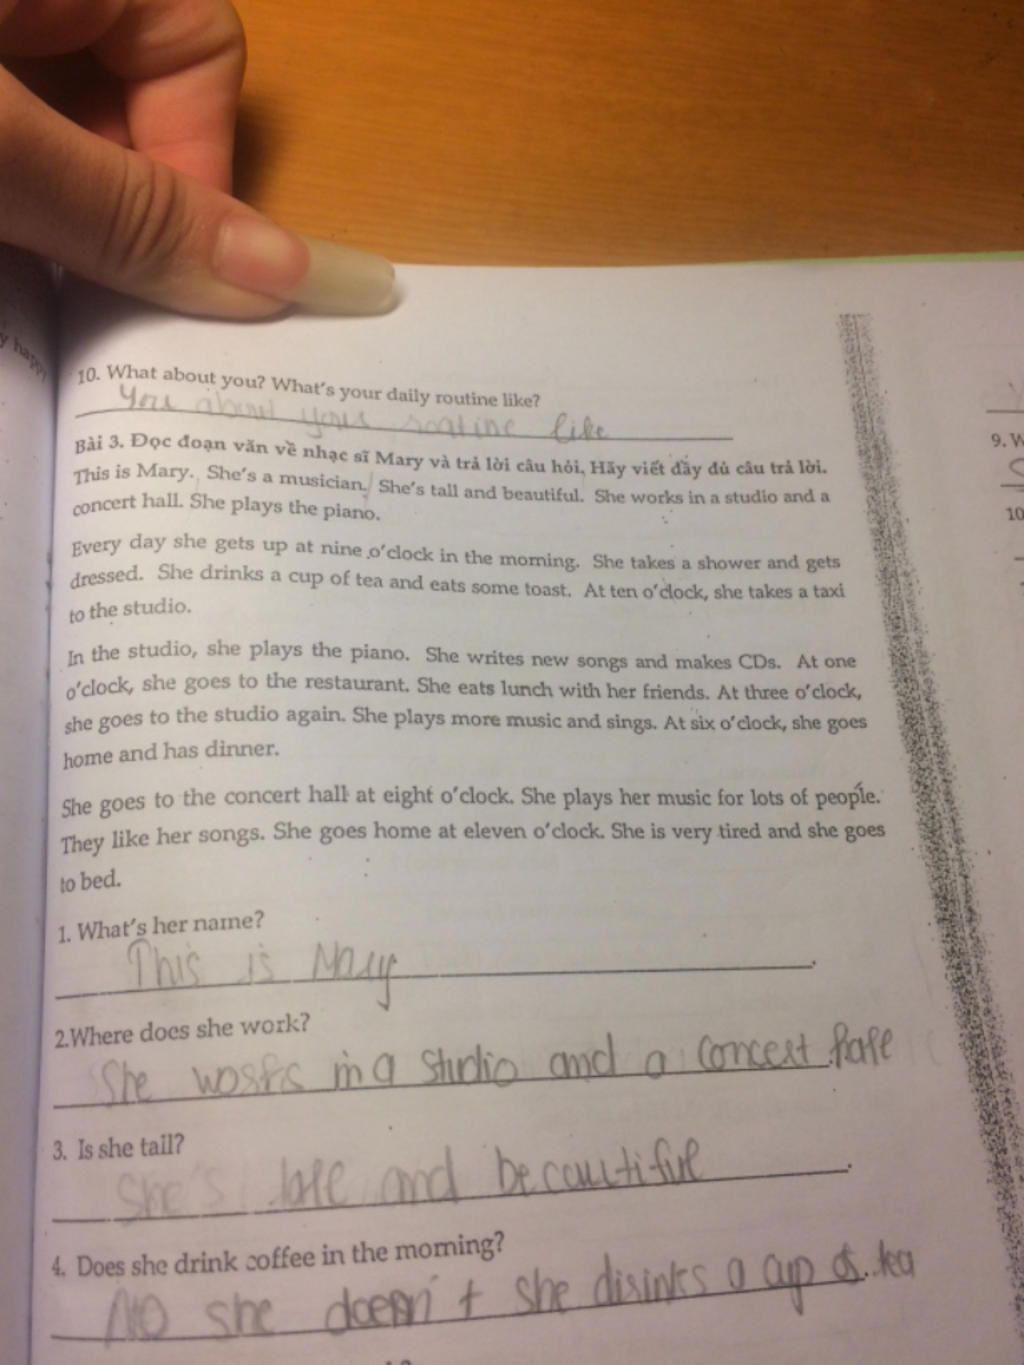 y happy
10. What about you? What's your daily routine like?
You about your routine like
Bài 3. Đọc đoạn văn về nhạc sĩ Mary và trả lời câu hỏi. Hãy viết đầy đủ câu trả lời.
This is Mary. She's a musician. She's tall and beautiful. She works in a studio and a
concert hall. She plays the piano.
Every day she gets up at nine o'clock in the morning. She takes a shower and gets
dressed. She drinks a cup of tea and eats some toast. At ten o'clock, she takes a taxi
to the studio.
In the studio, she plays the piano. She writes new songs and makes CDs. At one
o'clock, she goes to the restaurant. She eats lunch with her friends. At three o'clock,
she goes to the studio again. She plays more music and sings. At six o'clock, she goes
home and has dinner.
She goes to the concert hall at eight o'clock. She plays her music for lots of people.
They like her songs. She goes home at eleven o'clock. She is very tired and she goes
to bed.
1. What's her name?
This is Mary
2.Where does she work?
She works in a studio and a concert hall
3. Is she tall?
She's tall and becautiful
4. Does she drink coffee in the morning?
No she doesn't she disinks a cup of tea
9. W
10